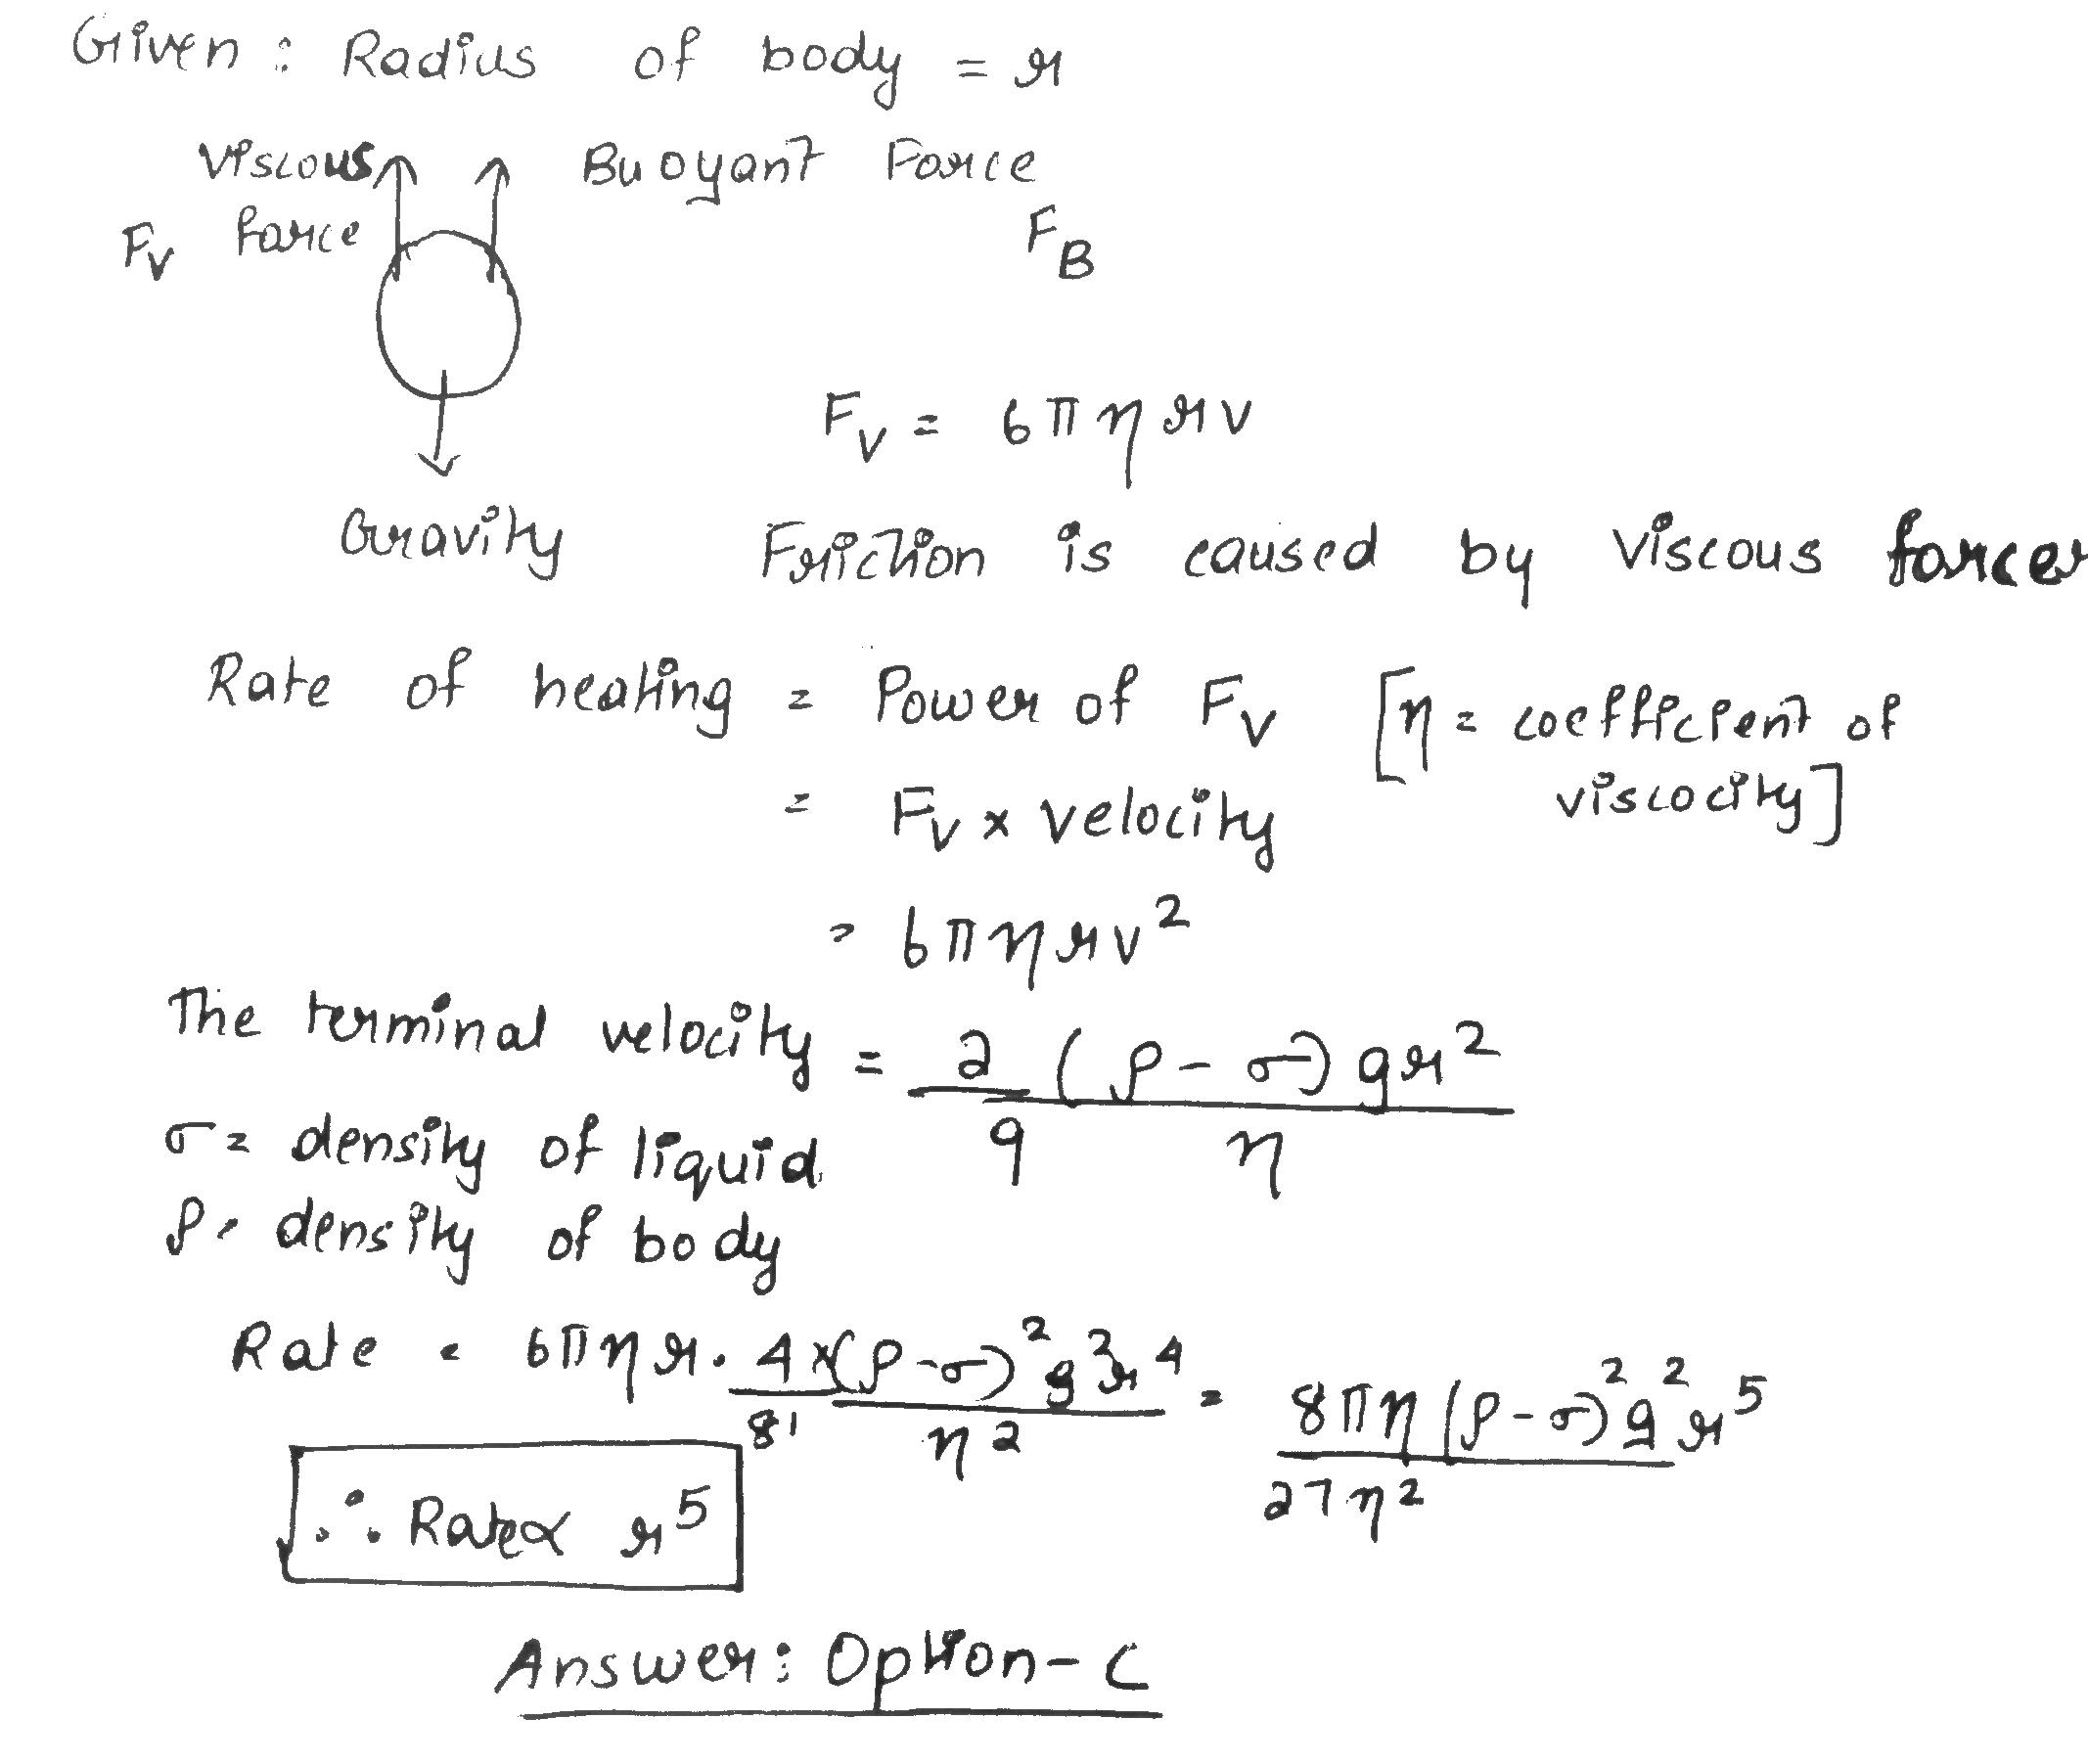 Given : Radius of body = r
Viscous Buoyant Force
Fv Force FB
Fv = 6πηrv
Gravity Friction is caused by viscous forces
Rate of heating = Power of Fv [η = coefficient of
= Fv x velocity viscocity]
= 6πηrv²
The terminal velocity = 2/9 (ρ - σ) gr²/η
σ = density of liquid
ρ = density of body
Rate = 6πηr. 4/81 x (ρ-σ)² g² r⁴/η² = 8πη (ρ-σ)² g² r⁵/27η²
∴ Rate ∝ r⁵
Answer: Option- C